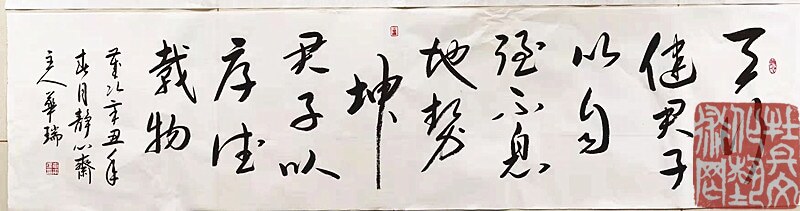 天行
健君子
以自
强不息
地势
坤
君子以
厚德
载物
岁次辛丑年
春月静心斋
主人華瑞